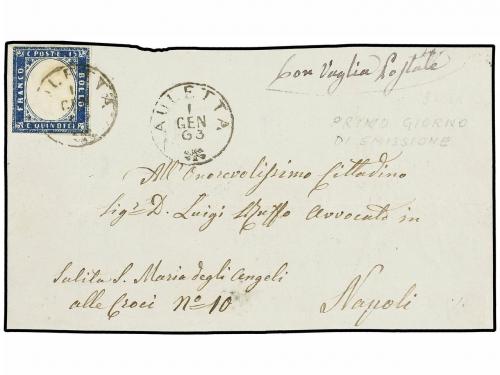 C. POSTE 15
FRANCO
BOLLO
C. QUINDICI
AULETTA
1
GEN
63
Con Vaglia Postale
PRIMO GIORNO
DI EMISSIONE
All'Onorevolissimo Cittadino
Sigr. D. Luigi Ruffo Avvocato in
Salita S. Maria degli Angeli
alle Croci No 10
Napoli